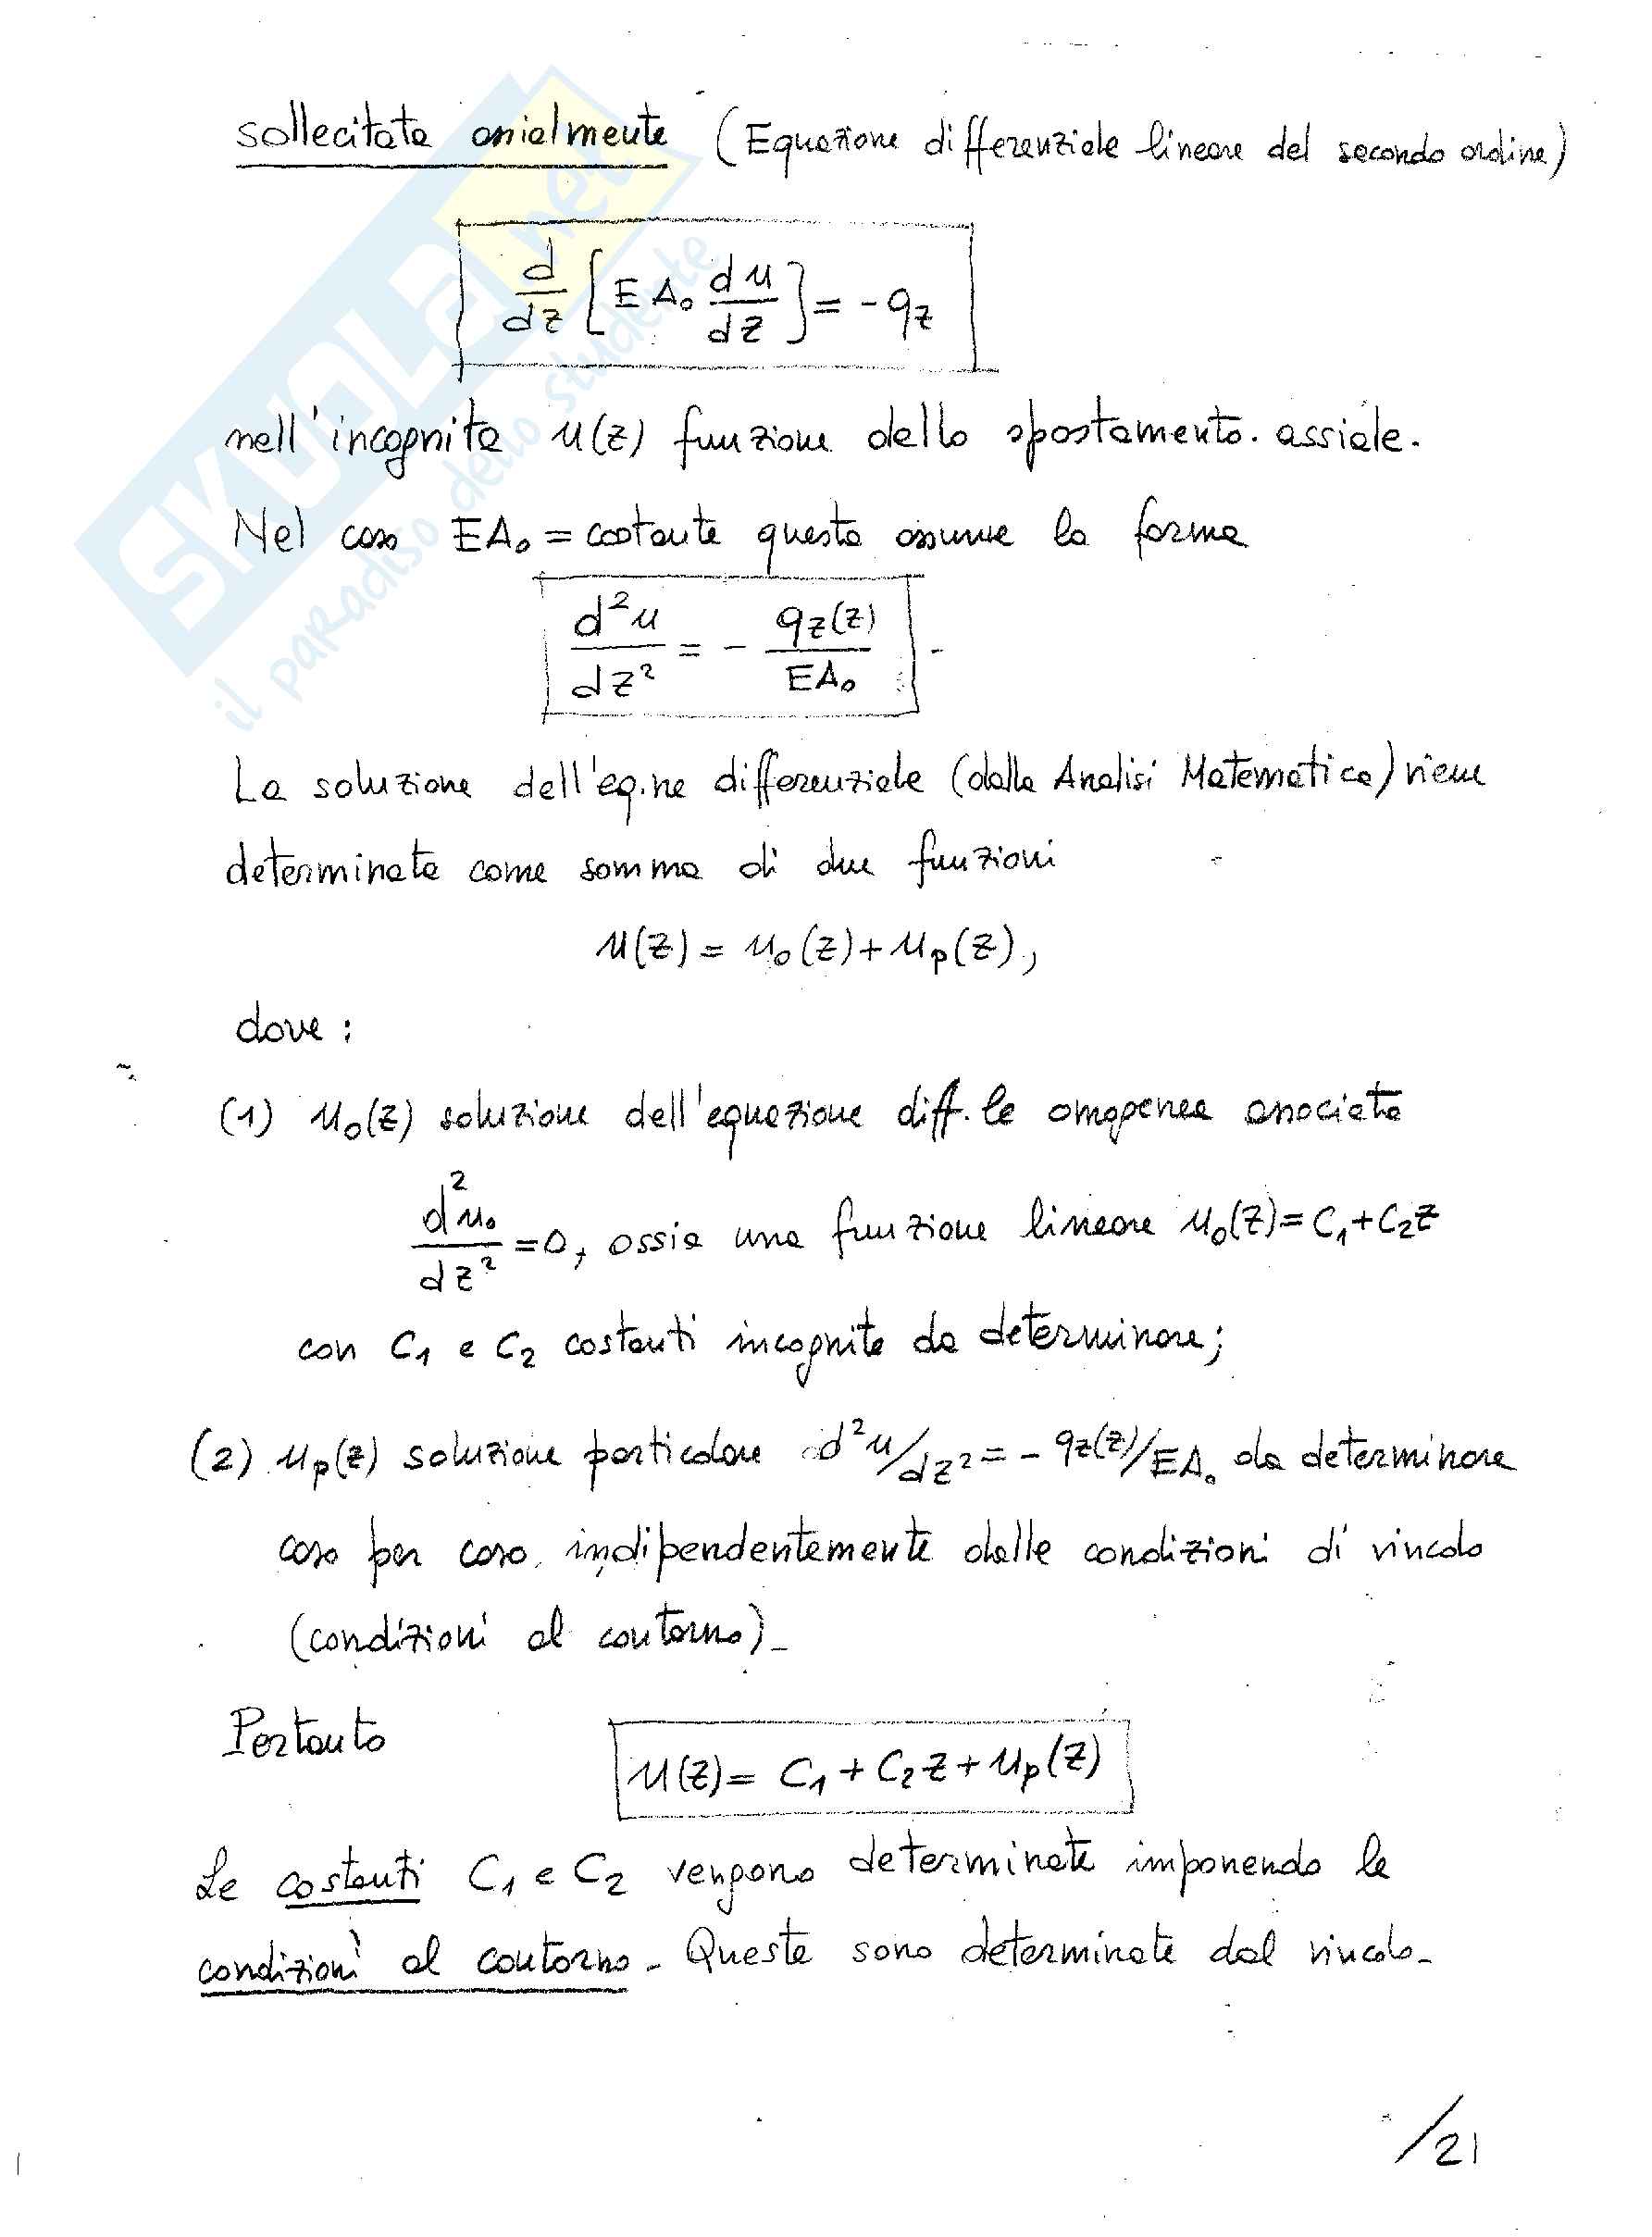 sollecitata assialmente (Equazione differenziale lineare del secondo ordine)
d/dz [EA₀ du/dz] = -qz
nell'incognita u(z) funzione dello spostamento assiale.
Nel caso EA₀ = costante questa assume la forma
d²u/dz² = - qz(z)/EA₀
La soluzione dell'eq.ne differenziale (dalla Analisi Matematica) viene
determinata come somma di due funzioni
u(z) = u₀(z) + up(z),
dove :
(1) u₀(z) soluzione dell'equazione diff.le omogenea associata
d²u₀/dz² = 0, ossia una funzione lineare u₀(z) = C₁ + C₂z
con C₁ e C₂ costanti incognite da determinare;
(2) up(z) soluzione particolare d²u/dz² = - qz(z)/EA₀ da determinare
caso per caso, indipendentemente dalle condizioni di vincolo
(condizioni al contorno)-
Pertanto
u(z) = C₁ + C₂z + up(z)
Le costanti C₁ e C₂ vengono determinate imponendo le
condizioni al contorno- Queste sono determinate dal vincolo-
/21
SKUOLA.net
il paradiso dello studente